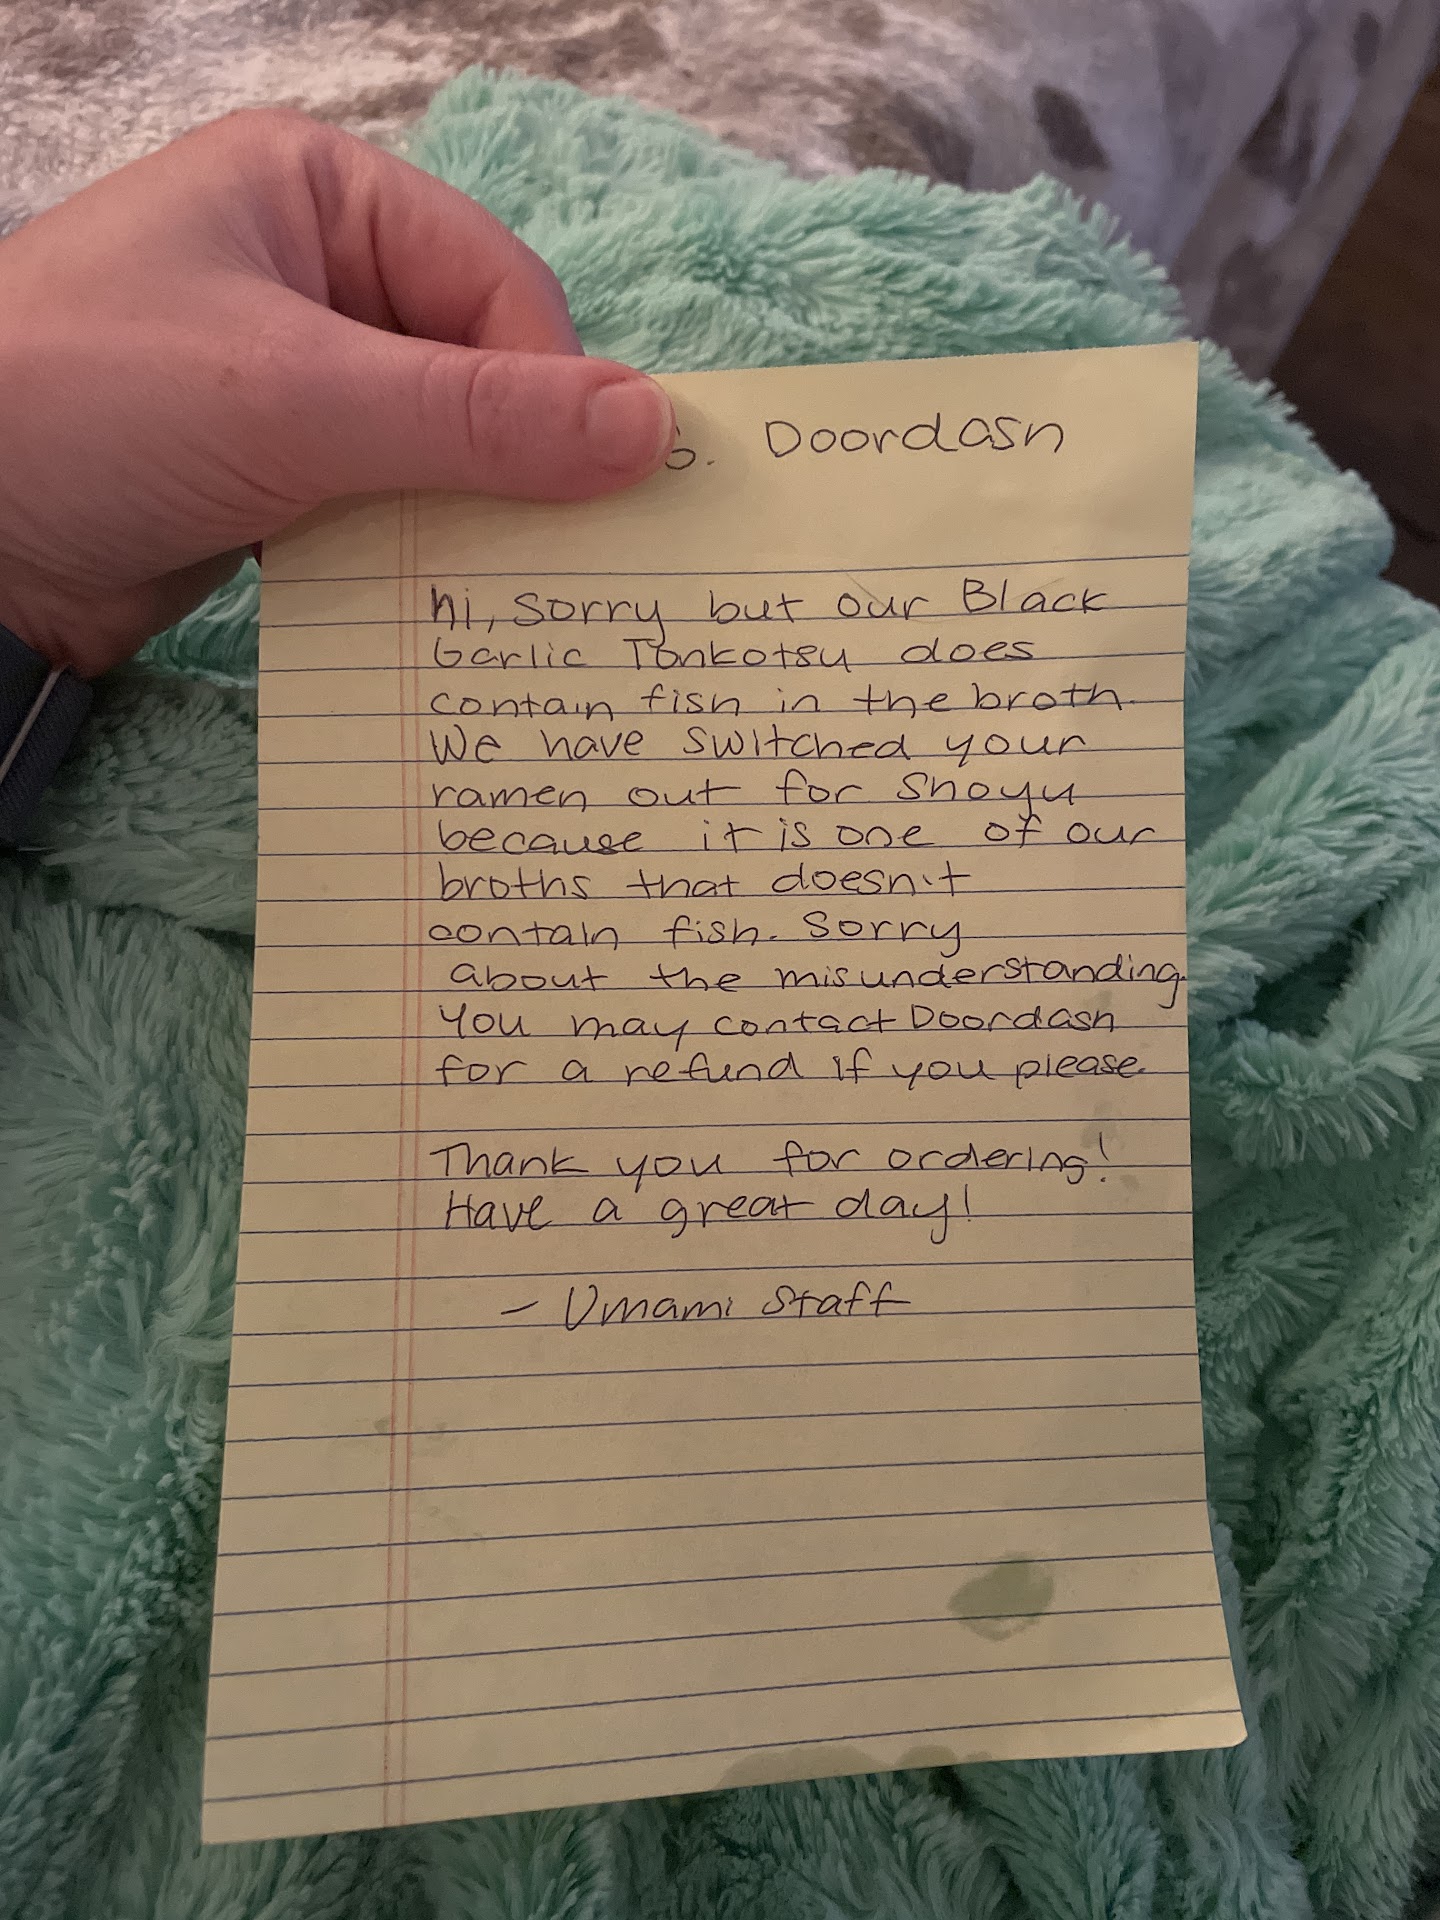 Doordash
hi, sorry but our Black
Garlic Tonkotsu does
contain fish in the broth.
We have switched your
ramen out for Shoyu
because it is one of our
broths that doesn't
contain fish. Sorry
about the misunderstanding.
You may contact Doordash
for a refund if you please.
Thank you for ordering!
Have a great day!
- Umami Staff